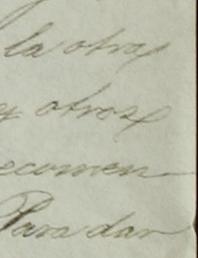 la otra
y otros
ecomen
Para dar